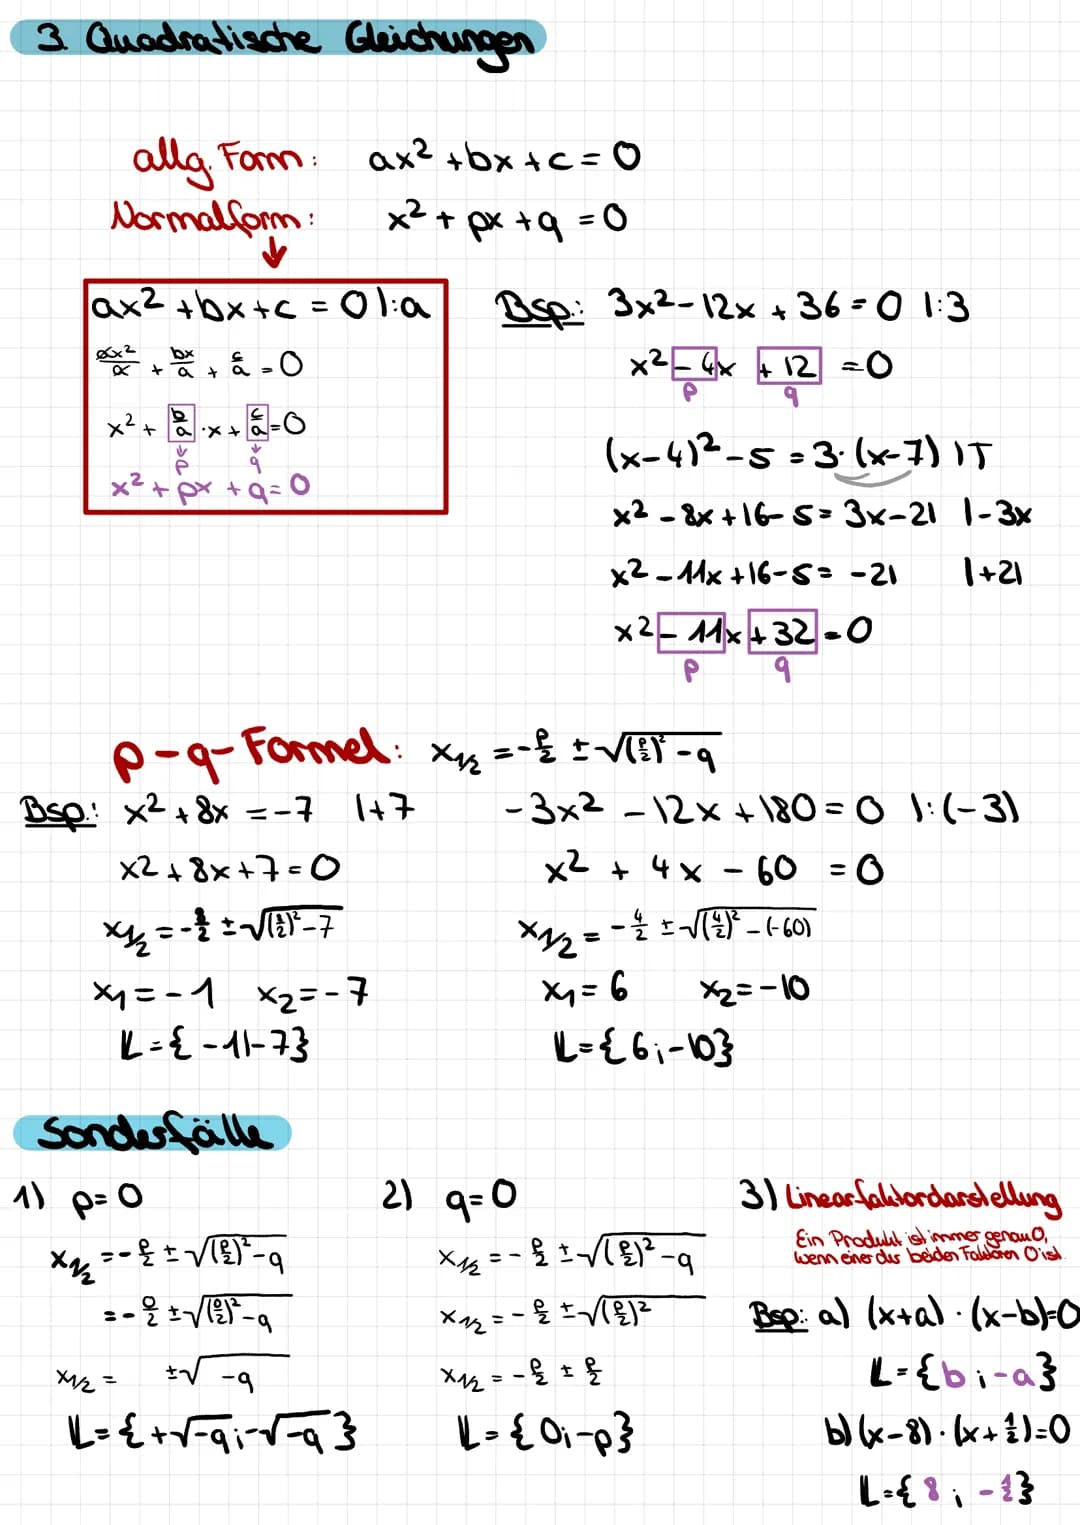 3. Quadratische Gleichungen
allg. Form: ax² + bx + c = 0
Normalform: x² + px + q = 0
↓
ax² + bx + c = 0 |:a
ax²/a + bx/a + c/a = 0
x² + b/a · x + c/a = 0
p q
x² + px + q = 0
Bsp.: 3x² - 12x + 36 = 0 |:3
x² - 4x + 12 = 0
p q
(x-4)² - 5 = 3·(x-7) |T
x² - 8x + 16 - 5 = 3x - 21 |-3x
x² - 11x + 16 - 5 = -21 |+21
x² - 11x + 32 = 0
p q
p-q-Formel: x1/2 = -p/2 ± √((p/2)² - q)
Bsp.: x² + 8x = -7 |+7
x² + 8x + 7 = 0
x1/2 = -8/2 ± √((8/2)² - 7)
x1 = -1 x2 = -7
𝕃 = {-1|-7}
-3x² - 12x + 180 = 0 |:(-3)
x² + 4x - 60 = 0
x1/2 = -4/2 ± √((4/2)² - (-60))
x1 = 6 x2 = -10
𝕃 = {6;-10}
Sonderfälle
1) p = 0
x1/2 = -p/2 ± √((p/2)² - q)
= -0/2 ± √((0/2)² - q)
x1/2 = ±√-q
𝕃 = {+√-q;-√-q}
2) q = 0
x1/2 = -p/2 ± √((p/2)² - q)
x1/2 = -p/2 ± √((p/2)²
x1/2 = -p/2 ± p/2
𝕃 = {0;-p}
3) Linearfaktordarstellung
Ein Produkt ist immer genau 0,
wenn einer der beiden Faktoren 0 ist.
Bsp.: a) (x+a)·(x-b)=0
𝕃 = {b;-a}
b) (x-8)·(x+1/2)=0
𝕃 = {8;-1/2}